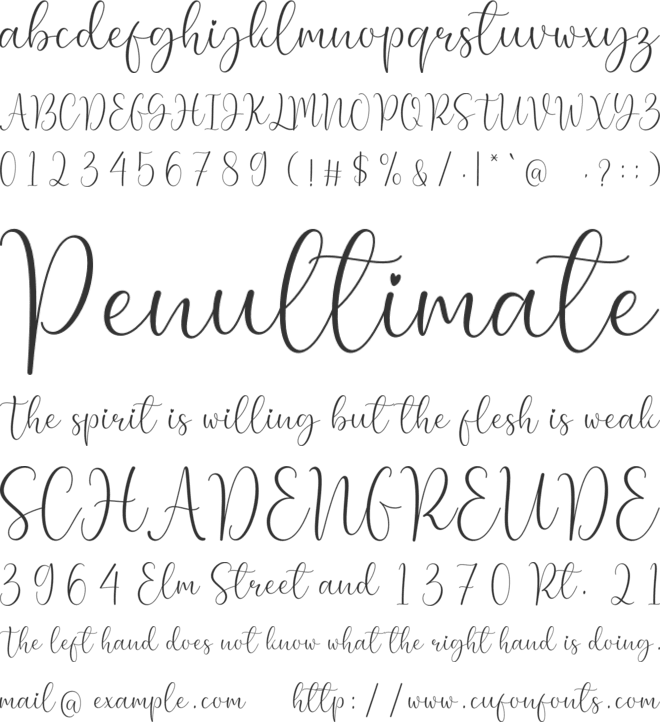 abcdefghijklmnopqrstuvwxyz
ABCDEFGHIJKLMNOPQRSTUVWXYZ
0123456789 (!#$%&/.|*`@ .?::)
Penultimate
the spirit is willing but the flesh is weak
SCHADENFREUDE
3964 Elm Street and 1370 Rt. 21
the left hand does not know what the right hand is doing.
mail@example.com http://www.cufonfonts.com